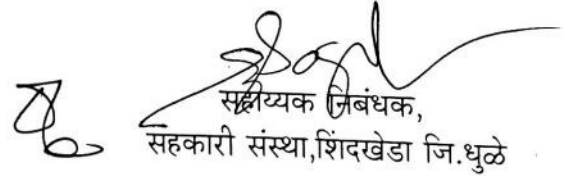 सहाय्यक निबंधक,
सहकारी संस्था,शिंदखेडा जि.धुळे